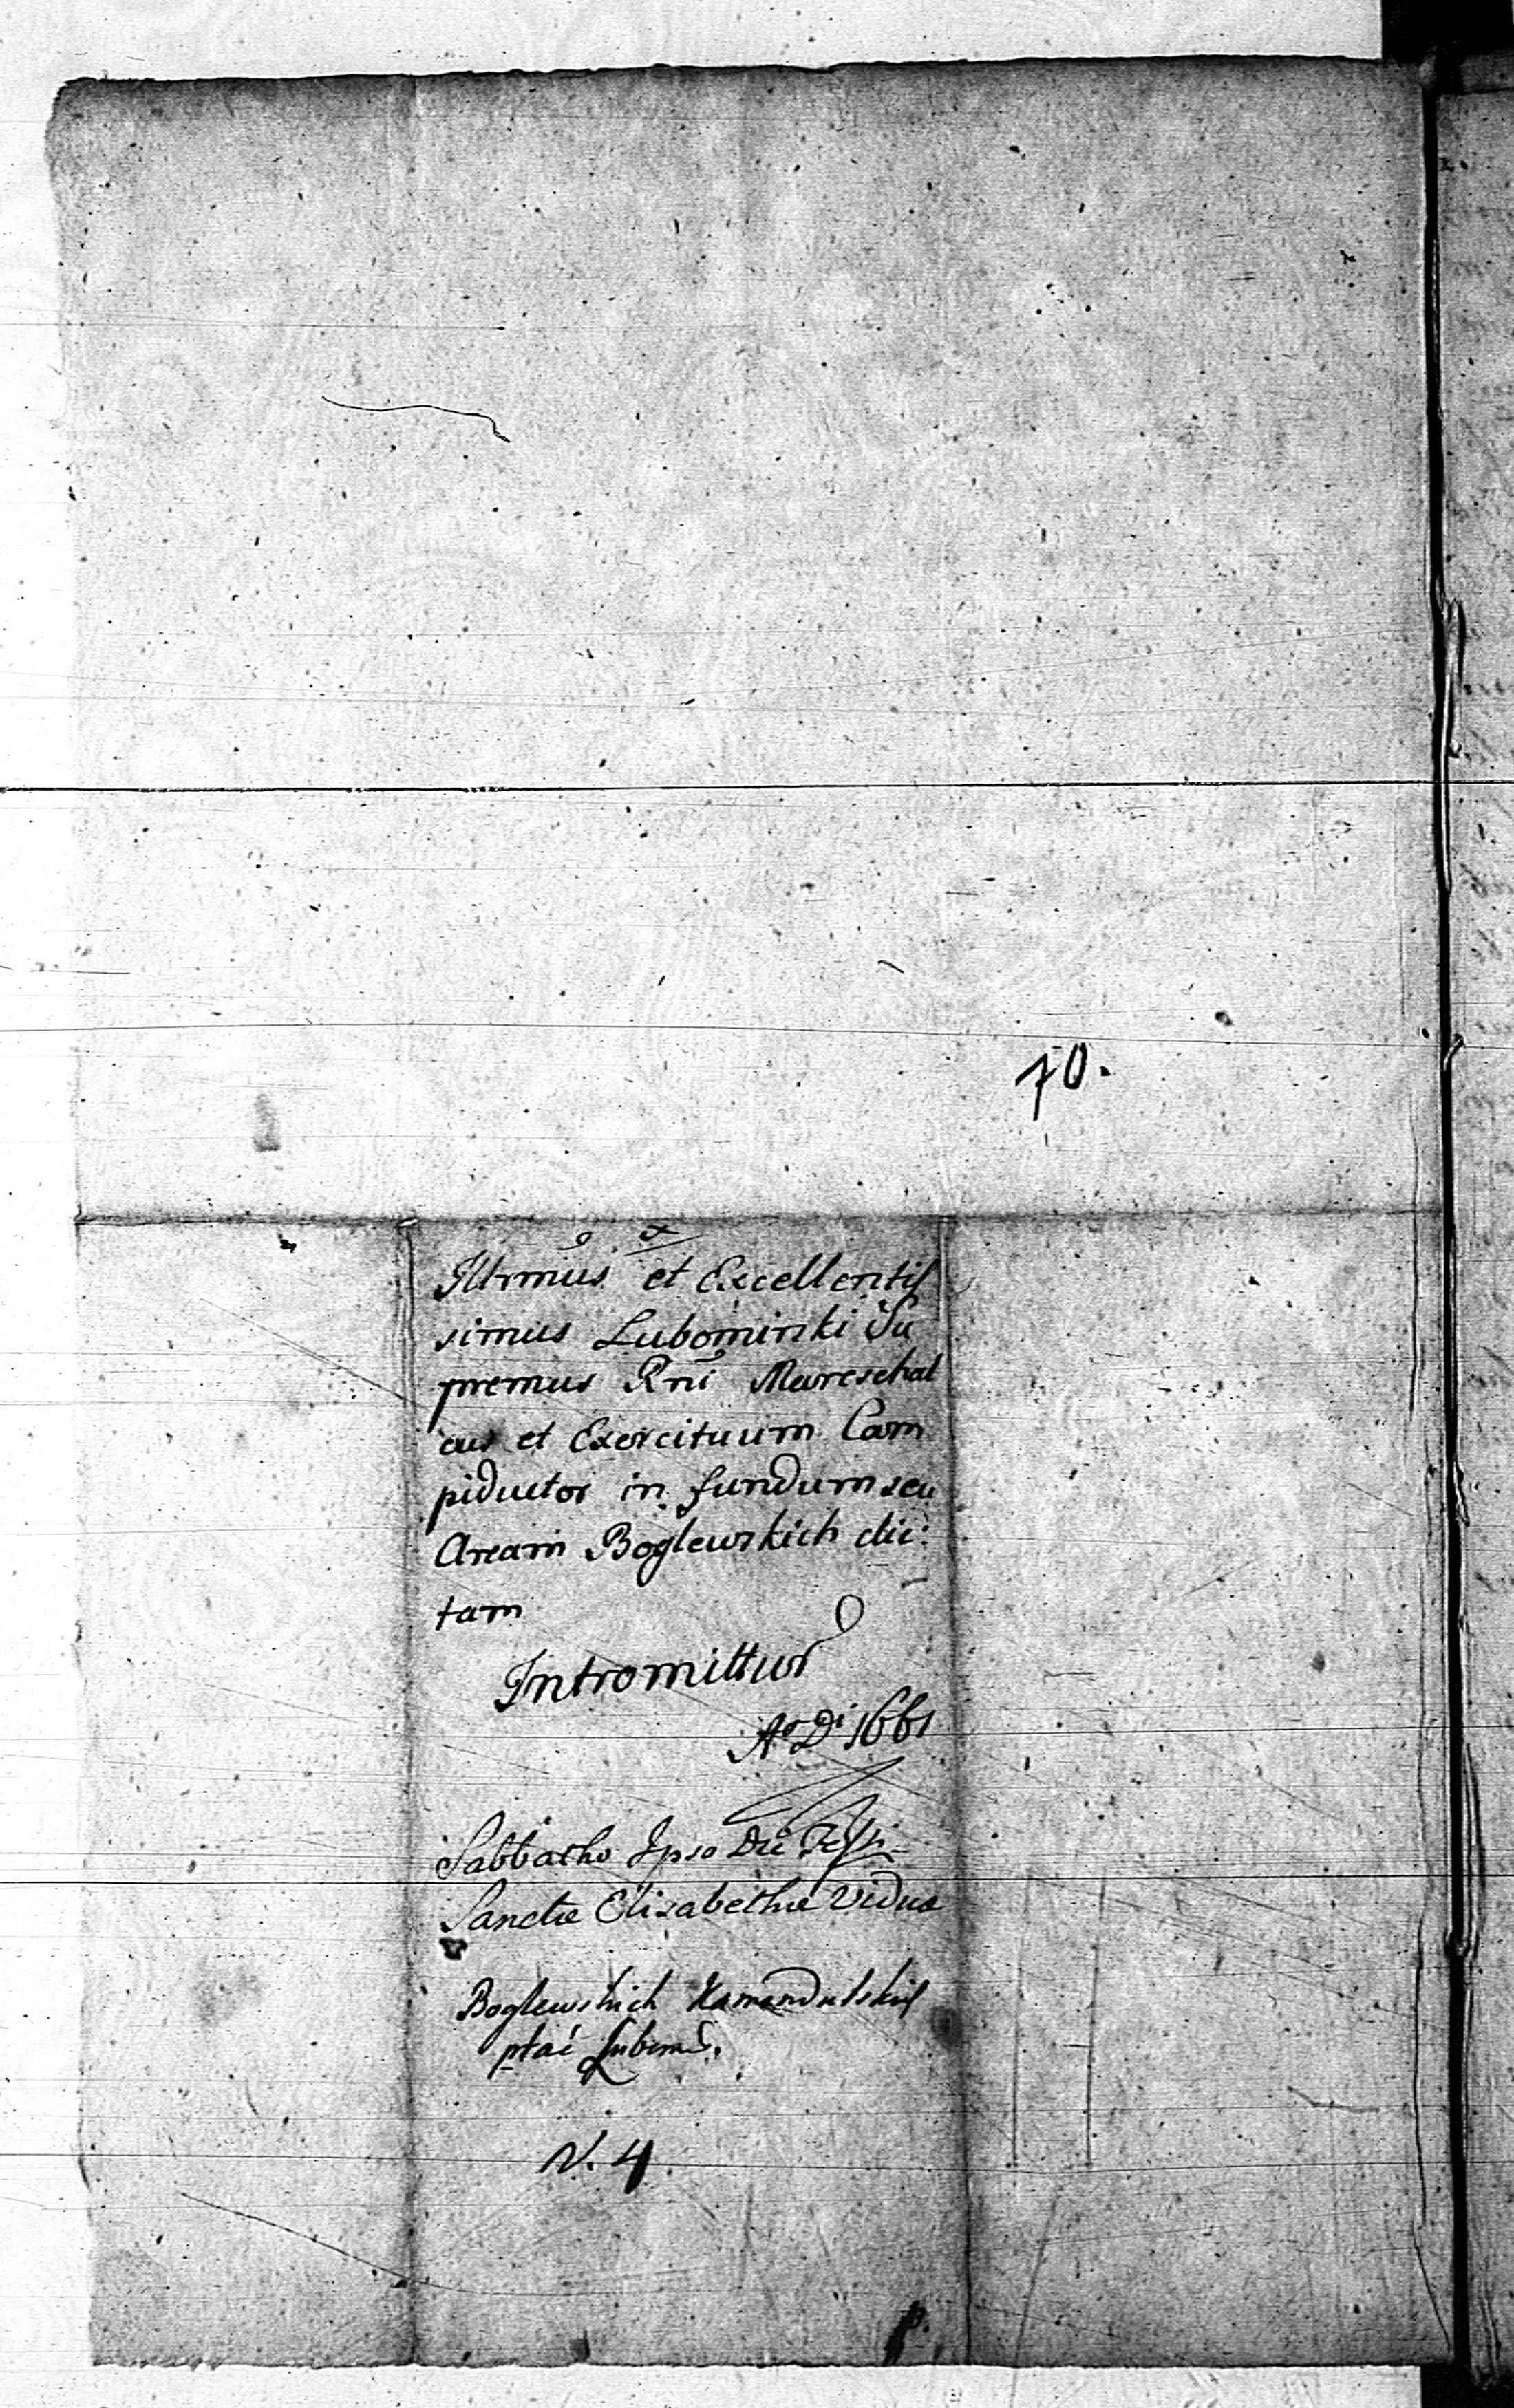 70.
Illrmus et Excellentis
simus Lubomirski Su
premus Rni Mareschal
cus et Exercituum Cam
piductor in fundum seu
Aream Boglewskich dic:
tam
Intromittur
Ao Di 1661
Sabbatho Ipso Die Festi
Sanctæ Elizabethæ Viduæ
Boglewskich
N. 4